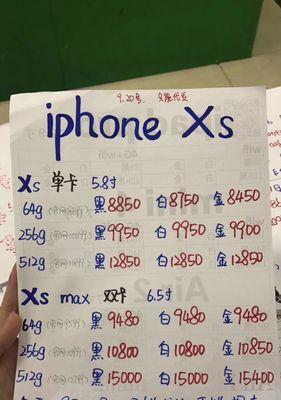 9.20号.
iphone Xs
Xs 单卡 5.8寸
64g 黑8850 白8750 金8450
256g 黑9950 白9950 金9900
512g 黑12850 白12850 金12850
Xs max 双卡 6.5寸
64g 黑9480 白9480 金9480
256g 黑10800 白10800 金10850
512g 黑15000 白15000 金15400